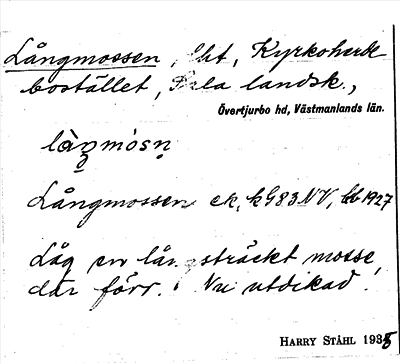 Långmossen, lht, Kyrkoherde
bostället, Sala landsk.,
Övertjurbo hd, Västmanlands län.
làŋmòsn̥
Långmossen ek. kG83NV, bb 1927
Låg en lång sträckt mosse
där förr. Nu utdikad!
HARRY STÅHL 1935